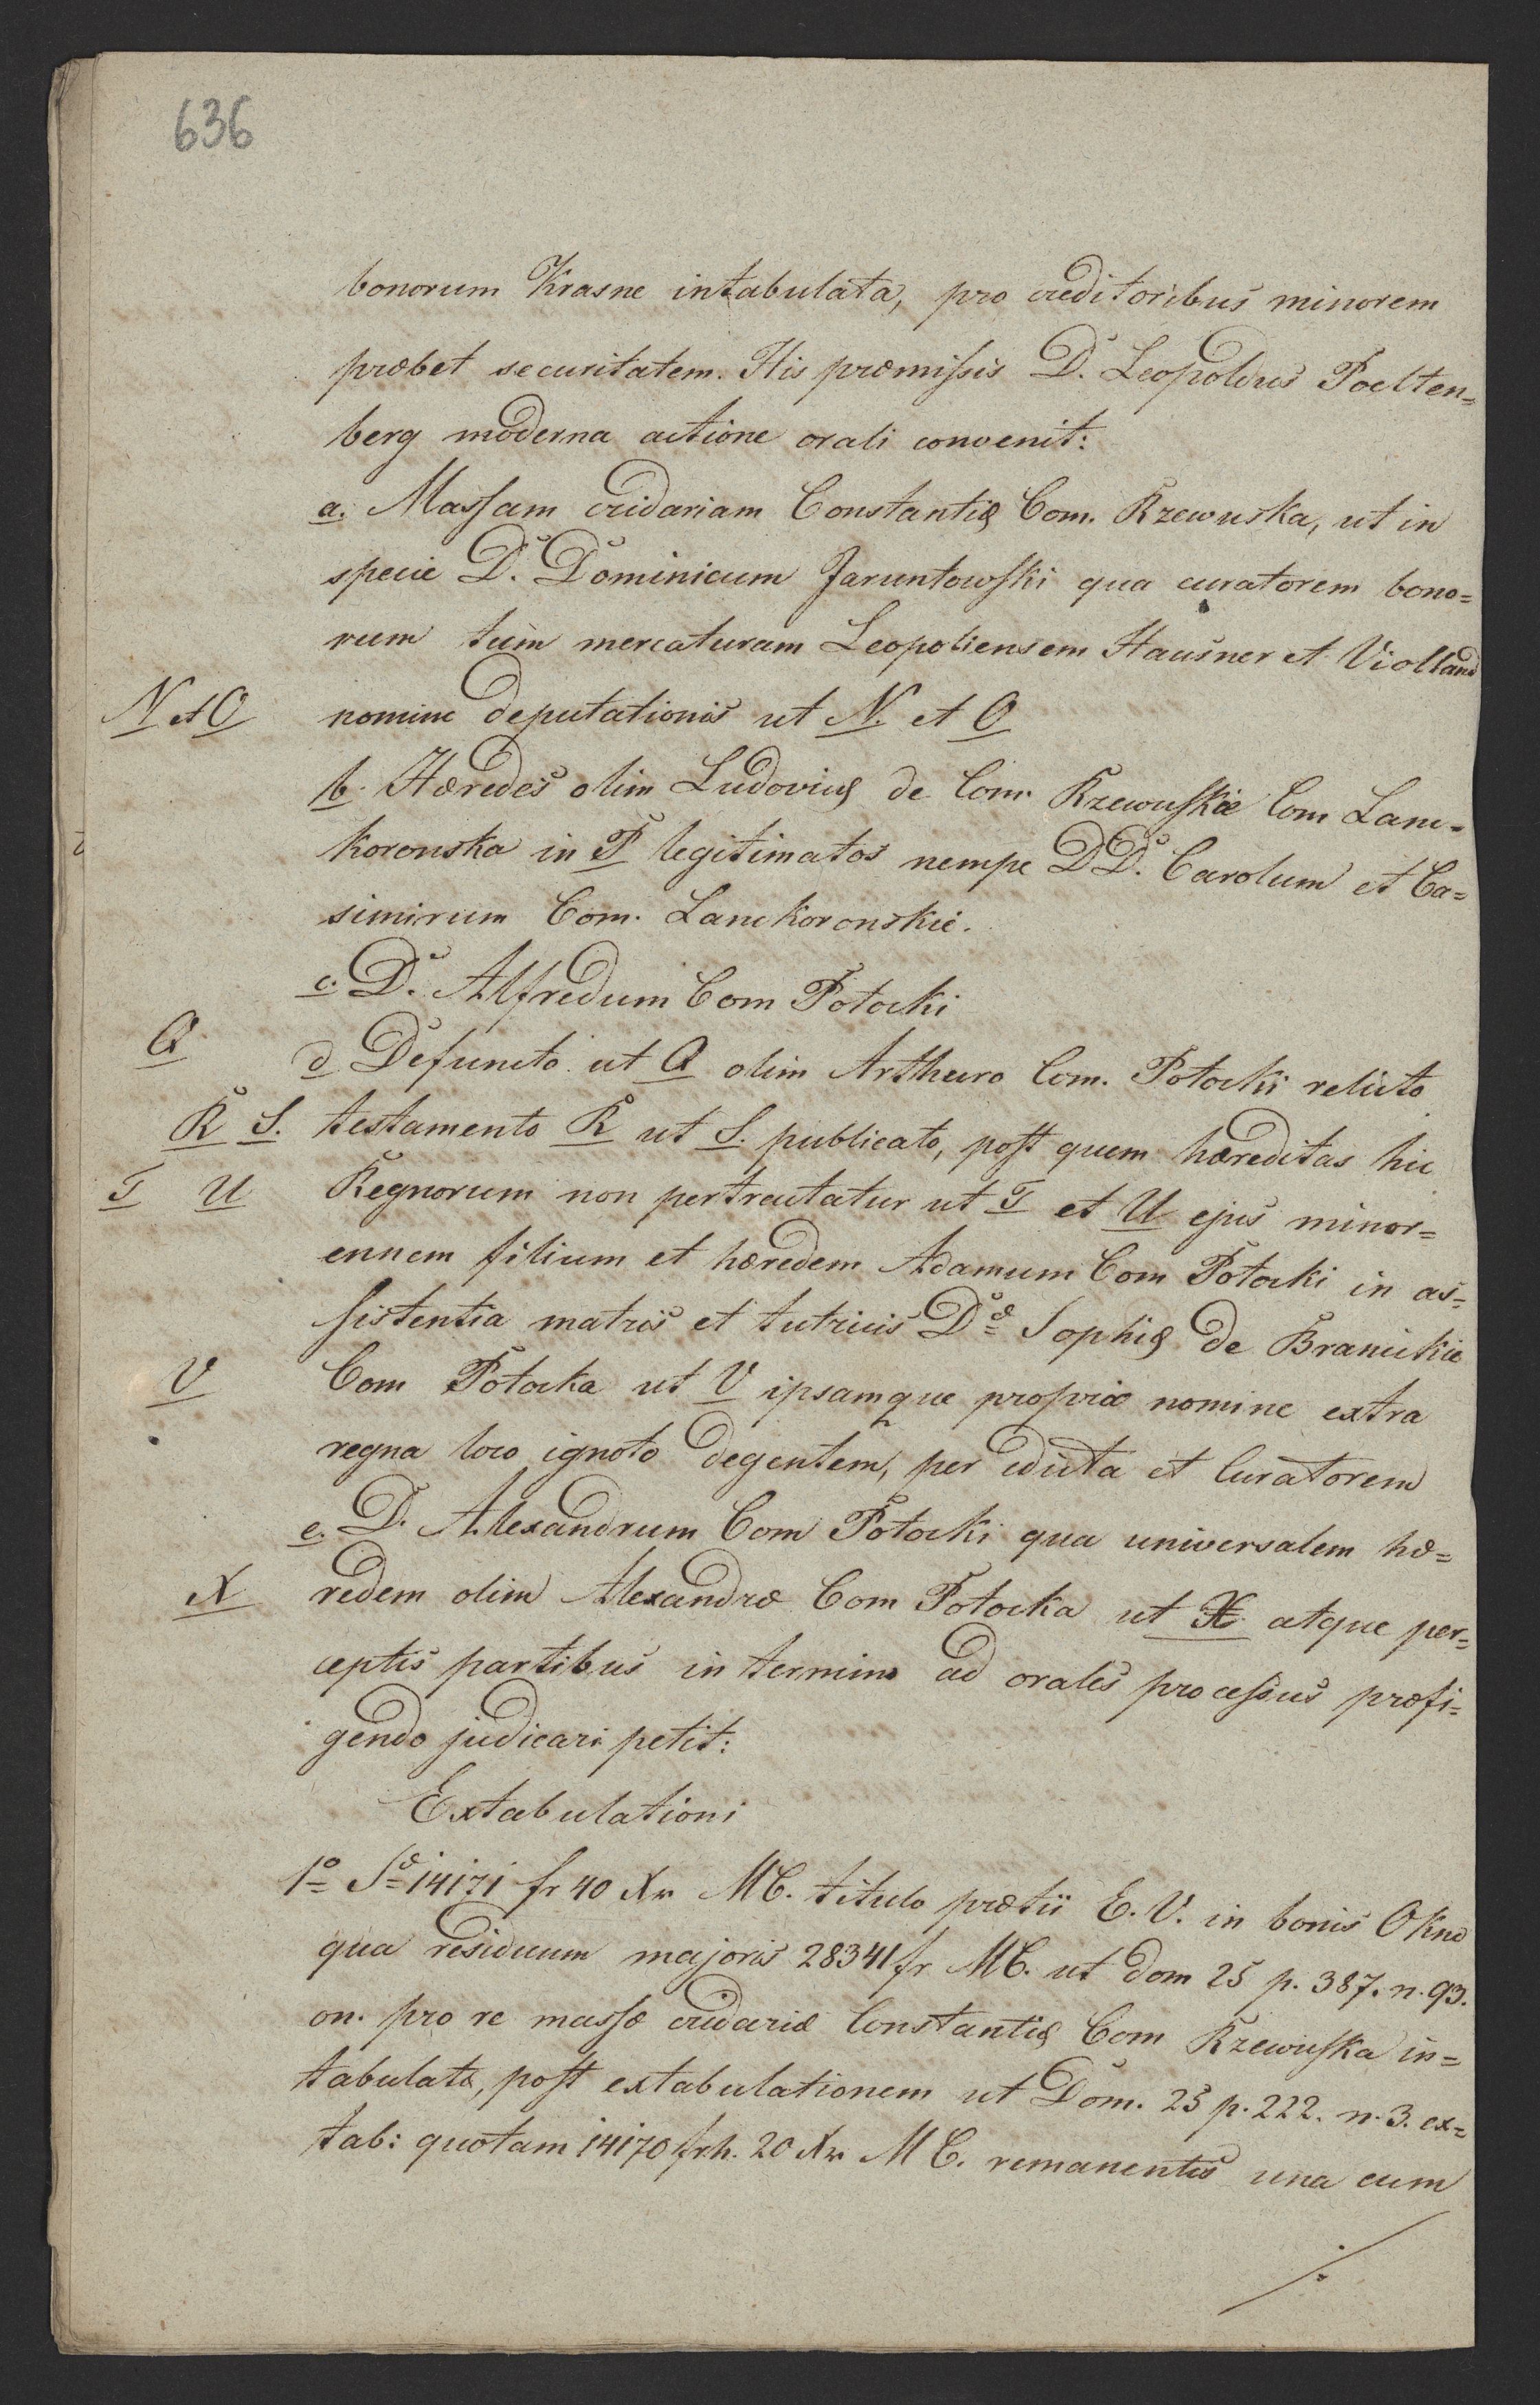 636
bonorum Krasne intabulata, pro creditoribus minorem
præbet securitatem. His præmissis D. Leopoldus Poelten=
berg moderna actione orali convenit:
a. Massam cridariam Constantiæ Com. Rzewuska, ut in
specie D. Dominicum Jaruntowski qua curatorem bono=
rum tum mercaturam Leopoliensem Hausner et Violland
N et O nomine deputationis ut N. et O
b. Hæredes olim Ludovicæ de Com. Rzewuskie Com Lanc=
koronska in P legitimatos nempe DD. Carolum et Ca=
simirum Com. Lanckoronskie.
c. D. Alfredum Com Potocki
Q d Defuncto ut Q olim Arthuro Com. Potocki relicto
R S. testamento R ut S. publicato, post quem hæreditas hic
T U Regnorum non pertractatur ut T et U ejus minor=
ennem filium et hæredem Adamum Com Potocki in as=
sistentia matris et tutricis Dæ Sophiæ de Branickie
V Com Potocka ut V ipsamque proprio nomine extra
regna loco ignoto degentem, per edicta et Curatorem
e. D. Alexandrum Com Potocki qua universalem hæ=
X redem olim Alexandræ Com Potocka ut X atque per=
ceptis partibus in termino ad orales processus præfi=
gendo judicari petit:
Extabulationi
1o Sæ 14171 fr 40 Xr MC. titulo prætii E. V. in bonis Okno
qua residuum majoris 28341 fr MC. ut dom 25 p. 387. n. 93.
on. pro re massæ cridariæ Constantiæ Com Rzewuska in=
tabulata, post extabulationem ut Dom. 25 p. 222. n. 3. ex=
tab: quotam 14170 frh. 20 Xr MC. remanentis una cum
./.